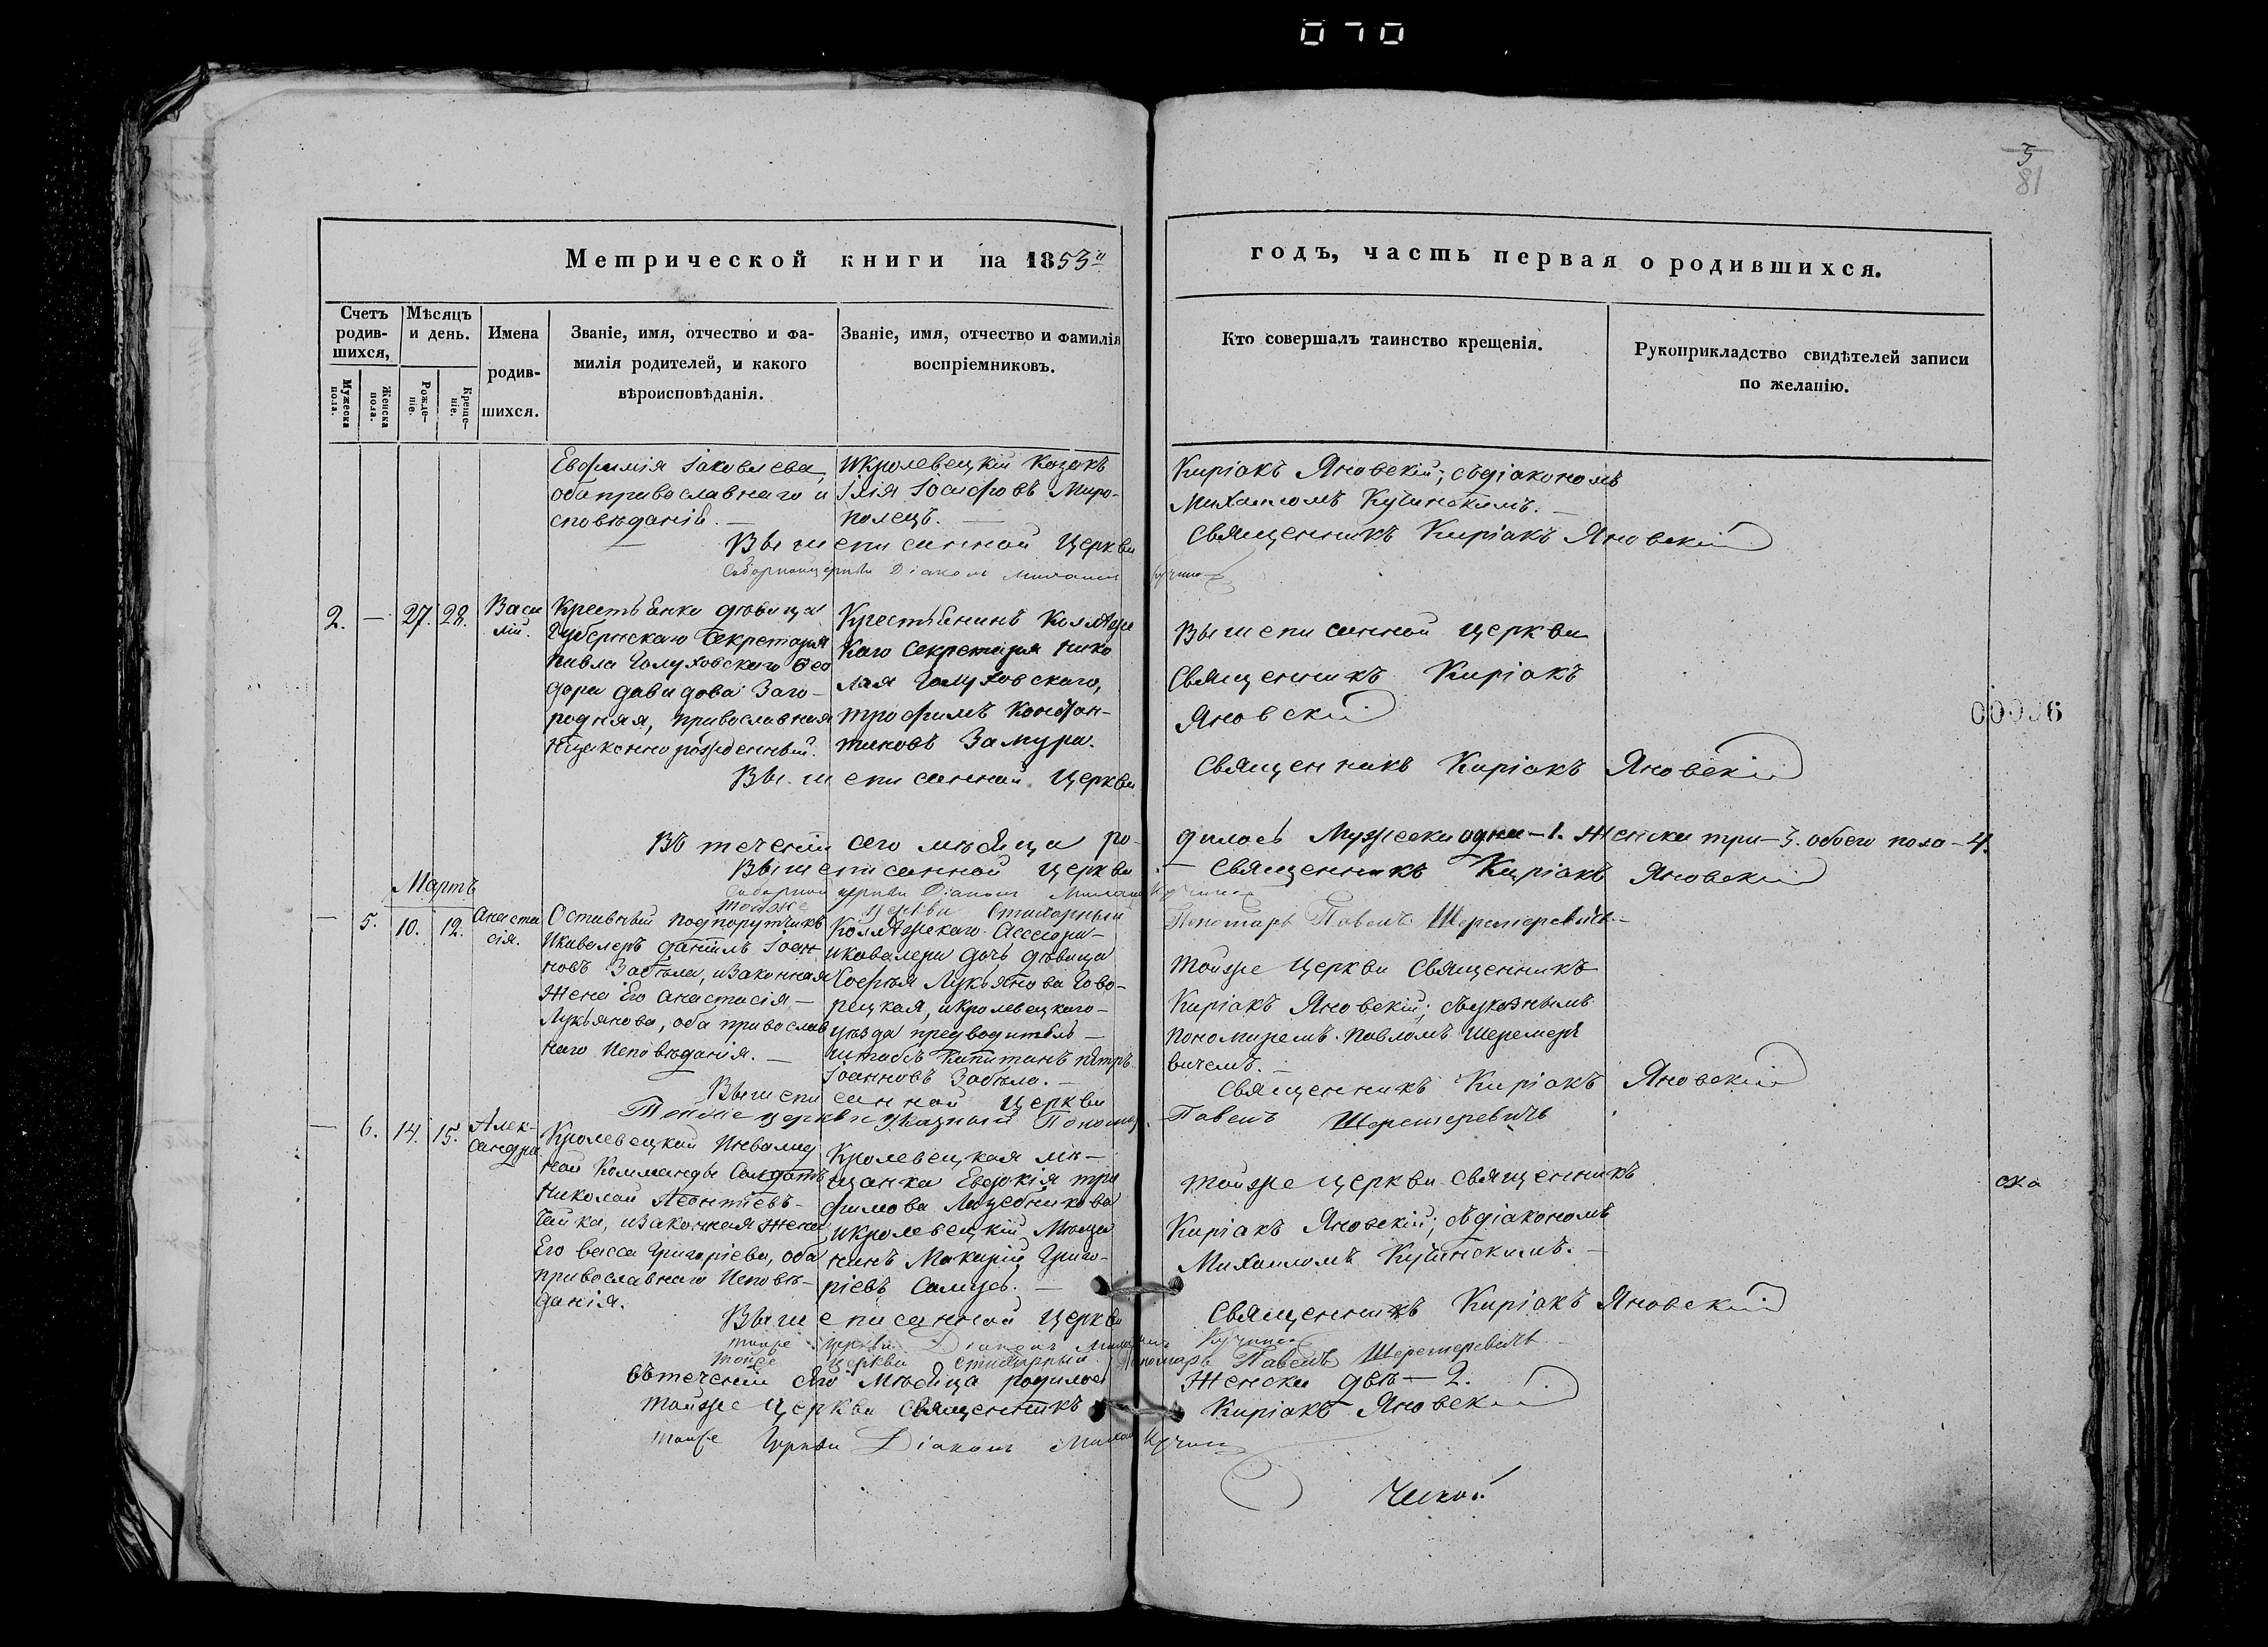 070
5
81
Метрической книги на 1853й
годъ, часть первая о родившихся.
Счетъ родив-шихся,
Мужеска пола.
Женска пола.
Мѣсяцъ и день.
Рожде-ніе.
Креще-ніе.
Имена родив-шихся.
Званіе, имя, отчество и фа-
милія родителей, и какого
вѣроисповѣданія.
Званіе, имя, отчество и фамилія
воспріемниковъ.
Кто совершалъ таинство крещенія.
Рукоприкладство свидѣтелей записи
по желанію.
Евфимія Іаковлева,
оба православнаго и
споведанія.
Икролевецкій Козакъ
Ілія Іосифовъ Миро-
полецъ.
Киріакъ Яновскій; съдіакономъ
Михаиломъ Кучинскимъ.
Вышеписанной Церкви Священникъ Киріакъ Яновскій
Соборной церкви Діаконъ Михаилъ
2. — 27. 28. Васи
лій.
Крестьянки дѣвицы
Губернскаго Секретаря
Павла Голуховскаго Ѳео
дора Давидова Заго-
родняя, православная
незаконно рожденный.
Крестьянинъ Коллѣж
каго Секретаря Нико
лая Голуховскаго,
Трофимъ Констан-
тиновъ Замура.
Вышеписанной церкви
Священникъ Киріакъ
Яновскій
00006
Вышеписанной Церкви Священникъ Киріакъ Яновскій
Въ теченіи сего мѣсяца ро-
дилось Мужеска одинъ — 1. Женска три — 3. обоего пола — 4.
Вышеписанной Церкви Священникъ Киріакъ Яновскій
Соборной церкви Діаконъ Михаилъ
Тойже церкви Стихарный Пономарь Павелъ Шереметевичъ
Мартъ
— 5. 10. 12. Анаста
сія.
Оставный подпорутчикъ
Икавалеръ Даніилъ Іоан
новъ Забѣла, изаконная
Жена Его Анастасія —
Лукьянова, оба православ
наго исповѣданія. —
Коллѣжскаго Ассесора —
икавалера дочь дѣвица
Софія Лукьянова Гово-
рецкая, икролевецкаго —
уѣзда предводитель —
штабъ Капитанъ Пѣтръ
Іоанновъ Забѣла. —
Тойже церкви Священникъ
Киріакъ Яновскій; съуказнымъ
пономаремъ Павломъ
вичемъ.
Вышеписанной церкви Священникъ Киріакъ Яновскій
Тойже церкви указный Пономарь Павелъ
— 6. 14. 15. Алек-
сандра
Кролевецкой Инвалид
ной Комманды Солдатъ
Николай Леонтіевъ-
Чайка, изаконная жена
Его Васса Григоріева, оба
православнаго Исповѣ-
данія.
Кролевецкая мѣ-
щанка Евдокія Тро
фимова Лазебникова
икролевецкій Мѣща
нинъ Макарій Григо-
ріевъ
Тойже церкви Священникъ
Киріакъ Яновскій; съдіакономъ
Михаиломъ Кучинскимъ. —
Вышеписанной Церкви Священникъ Киріакъ Яновскій
тойже церкви Діаконъ Михаилъ
Тойже церкви стихарный Пономарь Павелъ
Втеченіи сего Мѣсяца родилось Женска двѣ — 2.
Тойже Церкви Священникъ Киріакъ Яновскій
тойже Церкви Діаконъ Михаилъ